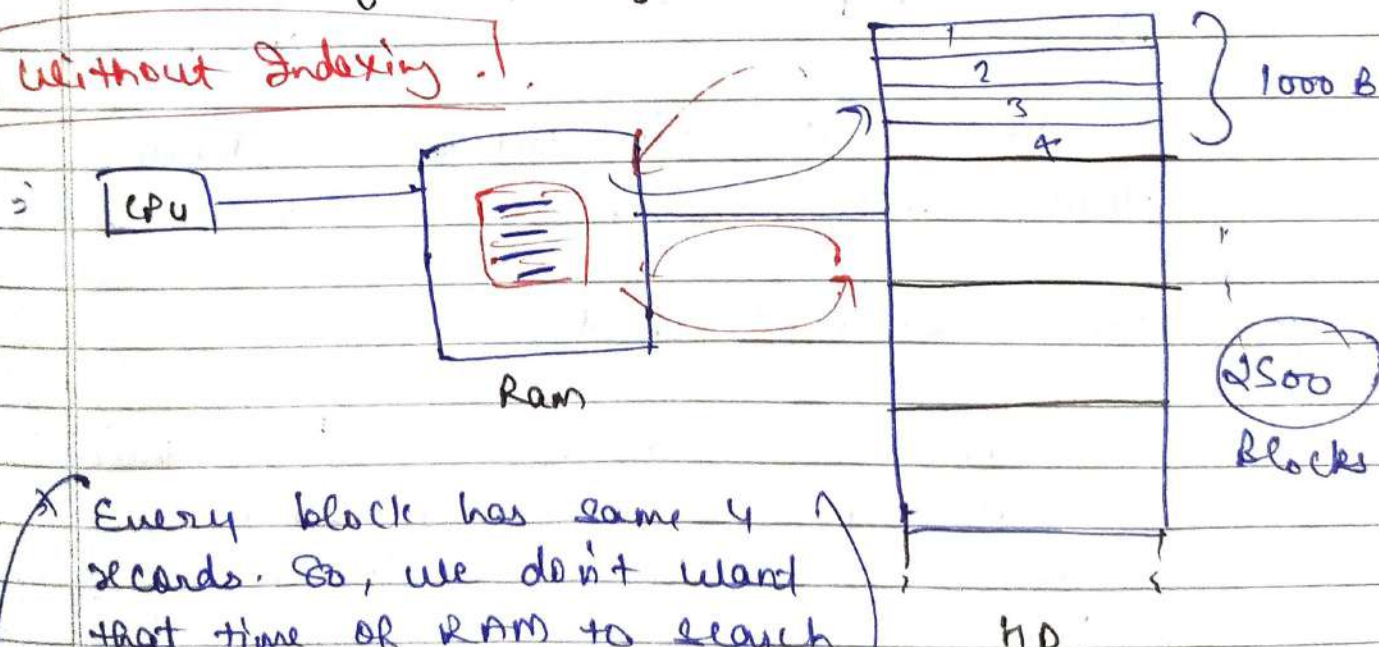 without Indexing .!.
1
2
3
4
1000 B
CPU
Ram
2500
Blocks
Every block has same 4
records. So, we don't wand
that time OR RAM to search
HD